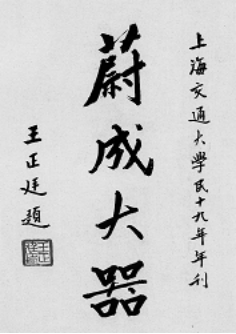 上海交通大學民十九年年刊
蔚成大器
王正廷題